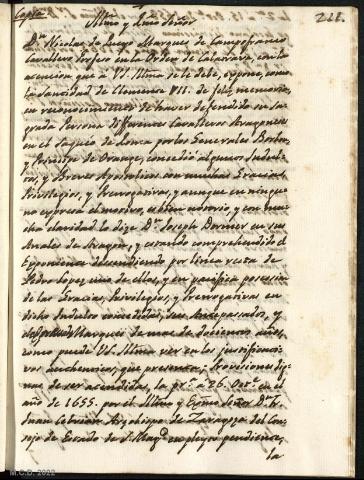 Copia
Illmo y Exmo Señor
222.
Dn. Nicolas de Luego Marques de Campofranco
Cavallero Profeso en la Orden de Calatrava, con la
atencion que a V.S. Illma se le debe, expone, como
la Santidad de Clemente VII. de feliz memoria,
en reconocimiento de haver defendido su Sa-
grada Persona differentes Cavalleros Aragoneses
en el Saqueo de Roma por los Generales Borbon,
y Principe de Orange, concedió algunos Indul-
tos, y Breves Apostolicos con muchas Gracias,
Privilegios, y Prerrogativas, y aunque en ningu-
no expresa el motivo, es bien notorio, y con mu-
cha claridad lo dize Dn. Joseph Dormer en sus
Anales de Aragon, y estando comprehendido el
Exponente descendiendo por linea recta de
Pedro Lopez uno de ellos, y en pacifica posesion
de las Gracias, Privilegios, y Prerrogativas en
dicho Indulto concedidas, sus Antepasados, y
Marques de mas de docientos años,
como puede V.S. Illma ver en los justificati-
vos authenticos, que presenta; Provisiones dig-
nas de ser atendidas, la pra. a 26. Octe. en el
año de 1655. por el Illmo y Exmo Señor Dn. Fr.
Juan Cebrian Arzobispo de Zaragoza del Con-
sejo de Estado de S. Magd. en pleyto pendiente,
la
M.C.D. 2022